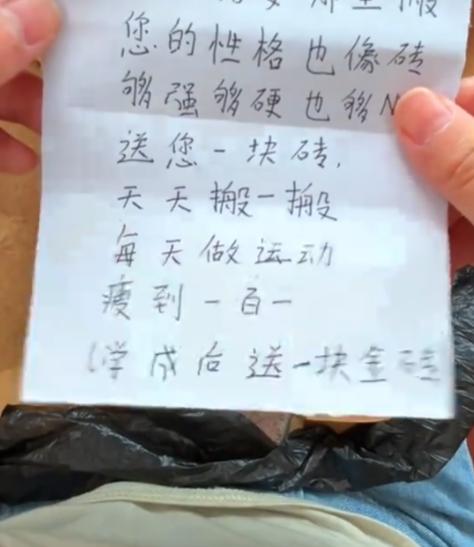 您的性格也像砖
够强够硬也够N
送您一块砖,
天天搬一搬
每天做运动
瘦到一百一
(学成后送一块金砖